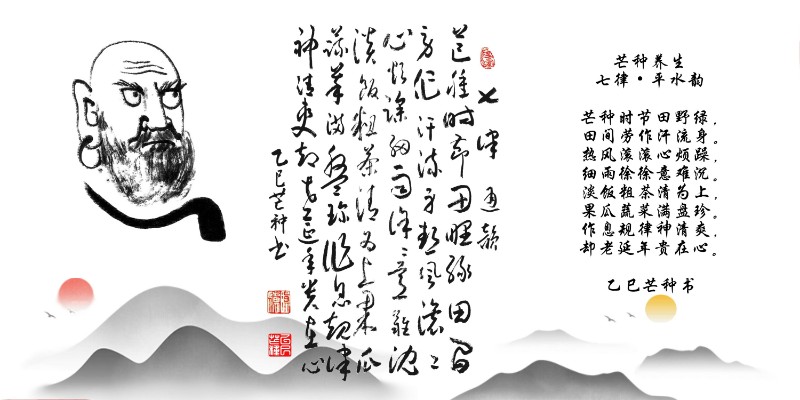 七律 通韵
芒种时节田野绿田间
劳作汗流身热风滚滚
心烦躁细雨徐徐意难沉
淡饭粗茶清为上果瓜
蔬菜满盘珍作息规律
神清爽却老延年贵在心
乙巳芒种书
芒种养生
七律·平水韵
芒种时节田野绿，
田间劳作汗流身。
热风滚滚心烦躁，
细雨徐徐意难沉。
淡饭粗茶清为上，
果瓜蔬菜满盘珍。
作息规律神清爽，
却老延年贵在心。
乙巳芒种书